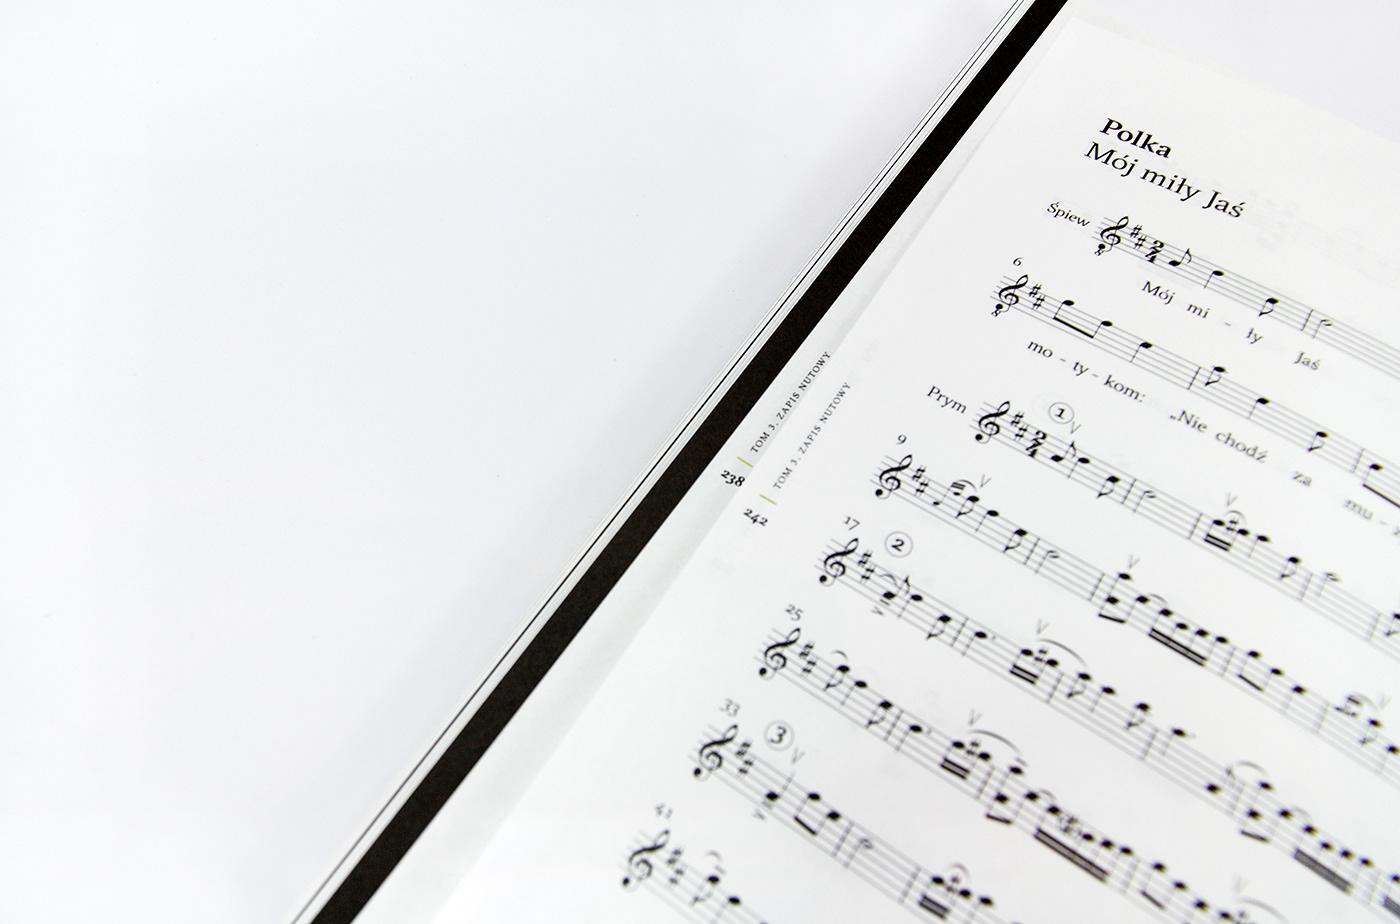 Polka
Mój miły Jaś
Śpiew
Mój mi - ły Jaś
6
mo - ty - kom: „Nie chodź za mu -
Prym
1
9
17
2
25
33
3
41
238 TOM 3. ZAPIS NUTOWY
242 TOM 3. ZAPIS NUTOWY